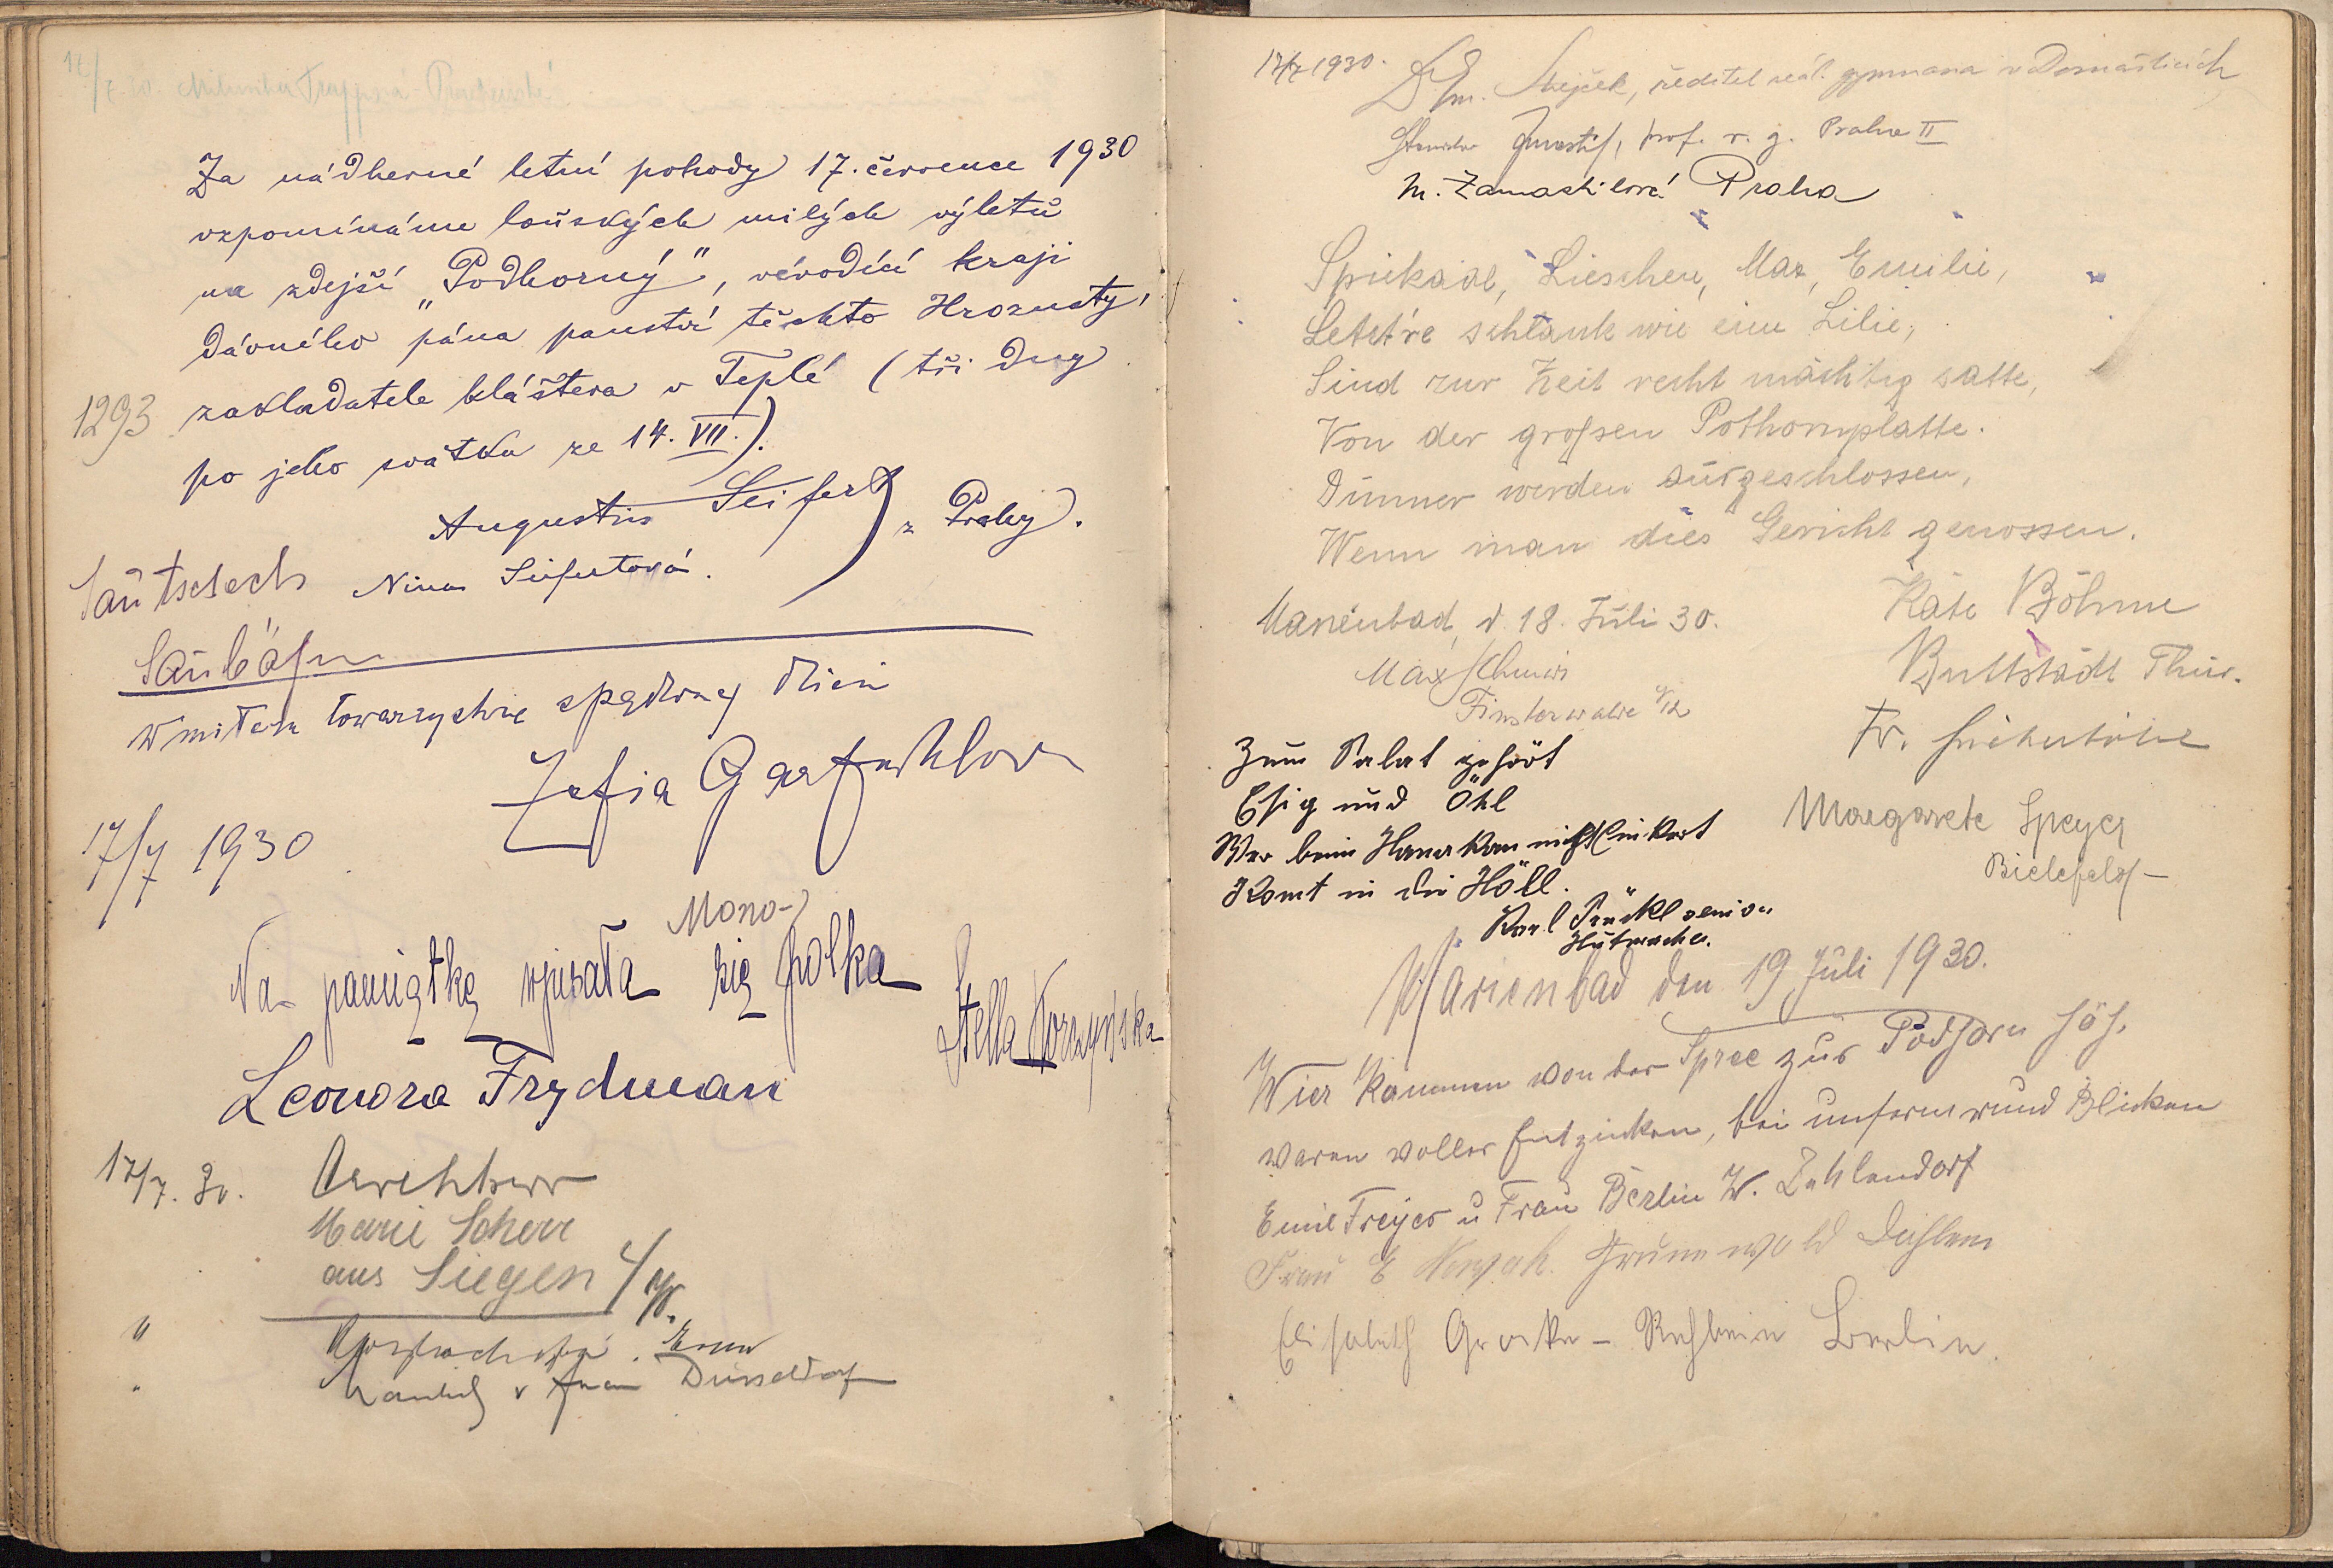 17/7 30.
Za nádherné letní pohody 17. července 1930
vzpomínáme loňských milých výletů
na zdejší „Podhorný", vévodící kraji
dávného pána panství těchto Hroznaty,
zakladatele kláštera v Teplé (tři dny
1293
po jeho svátku ze 14. VII.).
Augustin Seifert
z Prahy.
Nina Seifertová.
Sautschech
Saubös
W miłem towarzystwie spędzony dzień
Zofia
17/7 1930
Mono-
Na pamiątkę wpisała się polka
Stella Korzyńska
Leonora Frydman
17/7. 30.
Marie Scherr
aus Siegen i/W.
"
"
u Frau Düsseldorf
17/7 1930.
ředitel reál. gymnasia v Domažlicích
prof. r. g. Praha II
M. Zamastilová Praha
Spiekaal, Lieschen, Max, Emilie,
Letzt're schlank wie eine Lilie,
Sind zur Zeit recht mächtig satte,
Von der großen Pothornplatte.
Dünner werden ausgeschlossen,
Wenn man dies Gericht genossen.
Käte Böhme
Marienbad, d. 18. Juli 30.
Buttstädt Thür.
Max Schmidt
Finsterwalde N/L
Fr.
Zum Salat gehört
Esig und Öhl
Margarete Speyer
Wer beim Hanakam nicht einkert
Bielefeld
Komt in die Höll.
Karl senior
Hutmacher.
Marienbad den 19 Juli 1930.
Wier kammen von der Spree zur Podhorn Höh.
waren voller Entzücken, bei unserm rund Blicken
Emil Freyer u Frau Berlin W. Zehlendorf
Frau E Nowak. Grunewald Dahlem
Elisabeth - Rehbein Berlin.